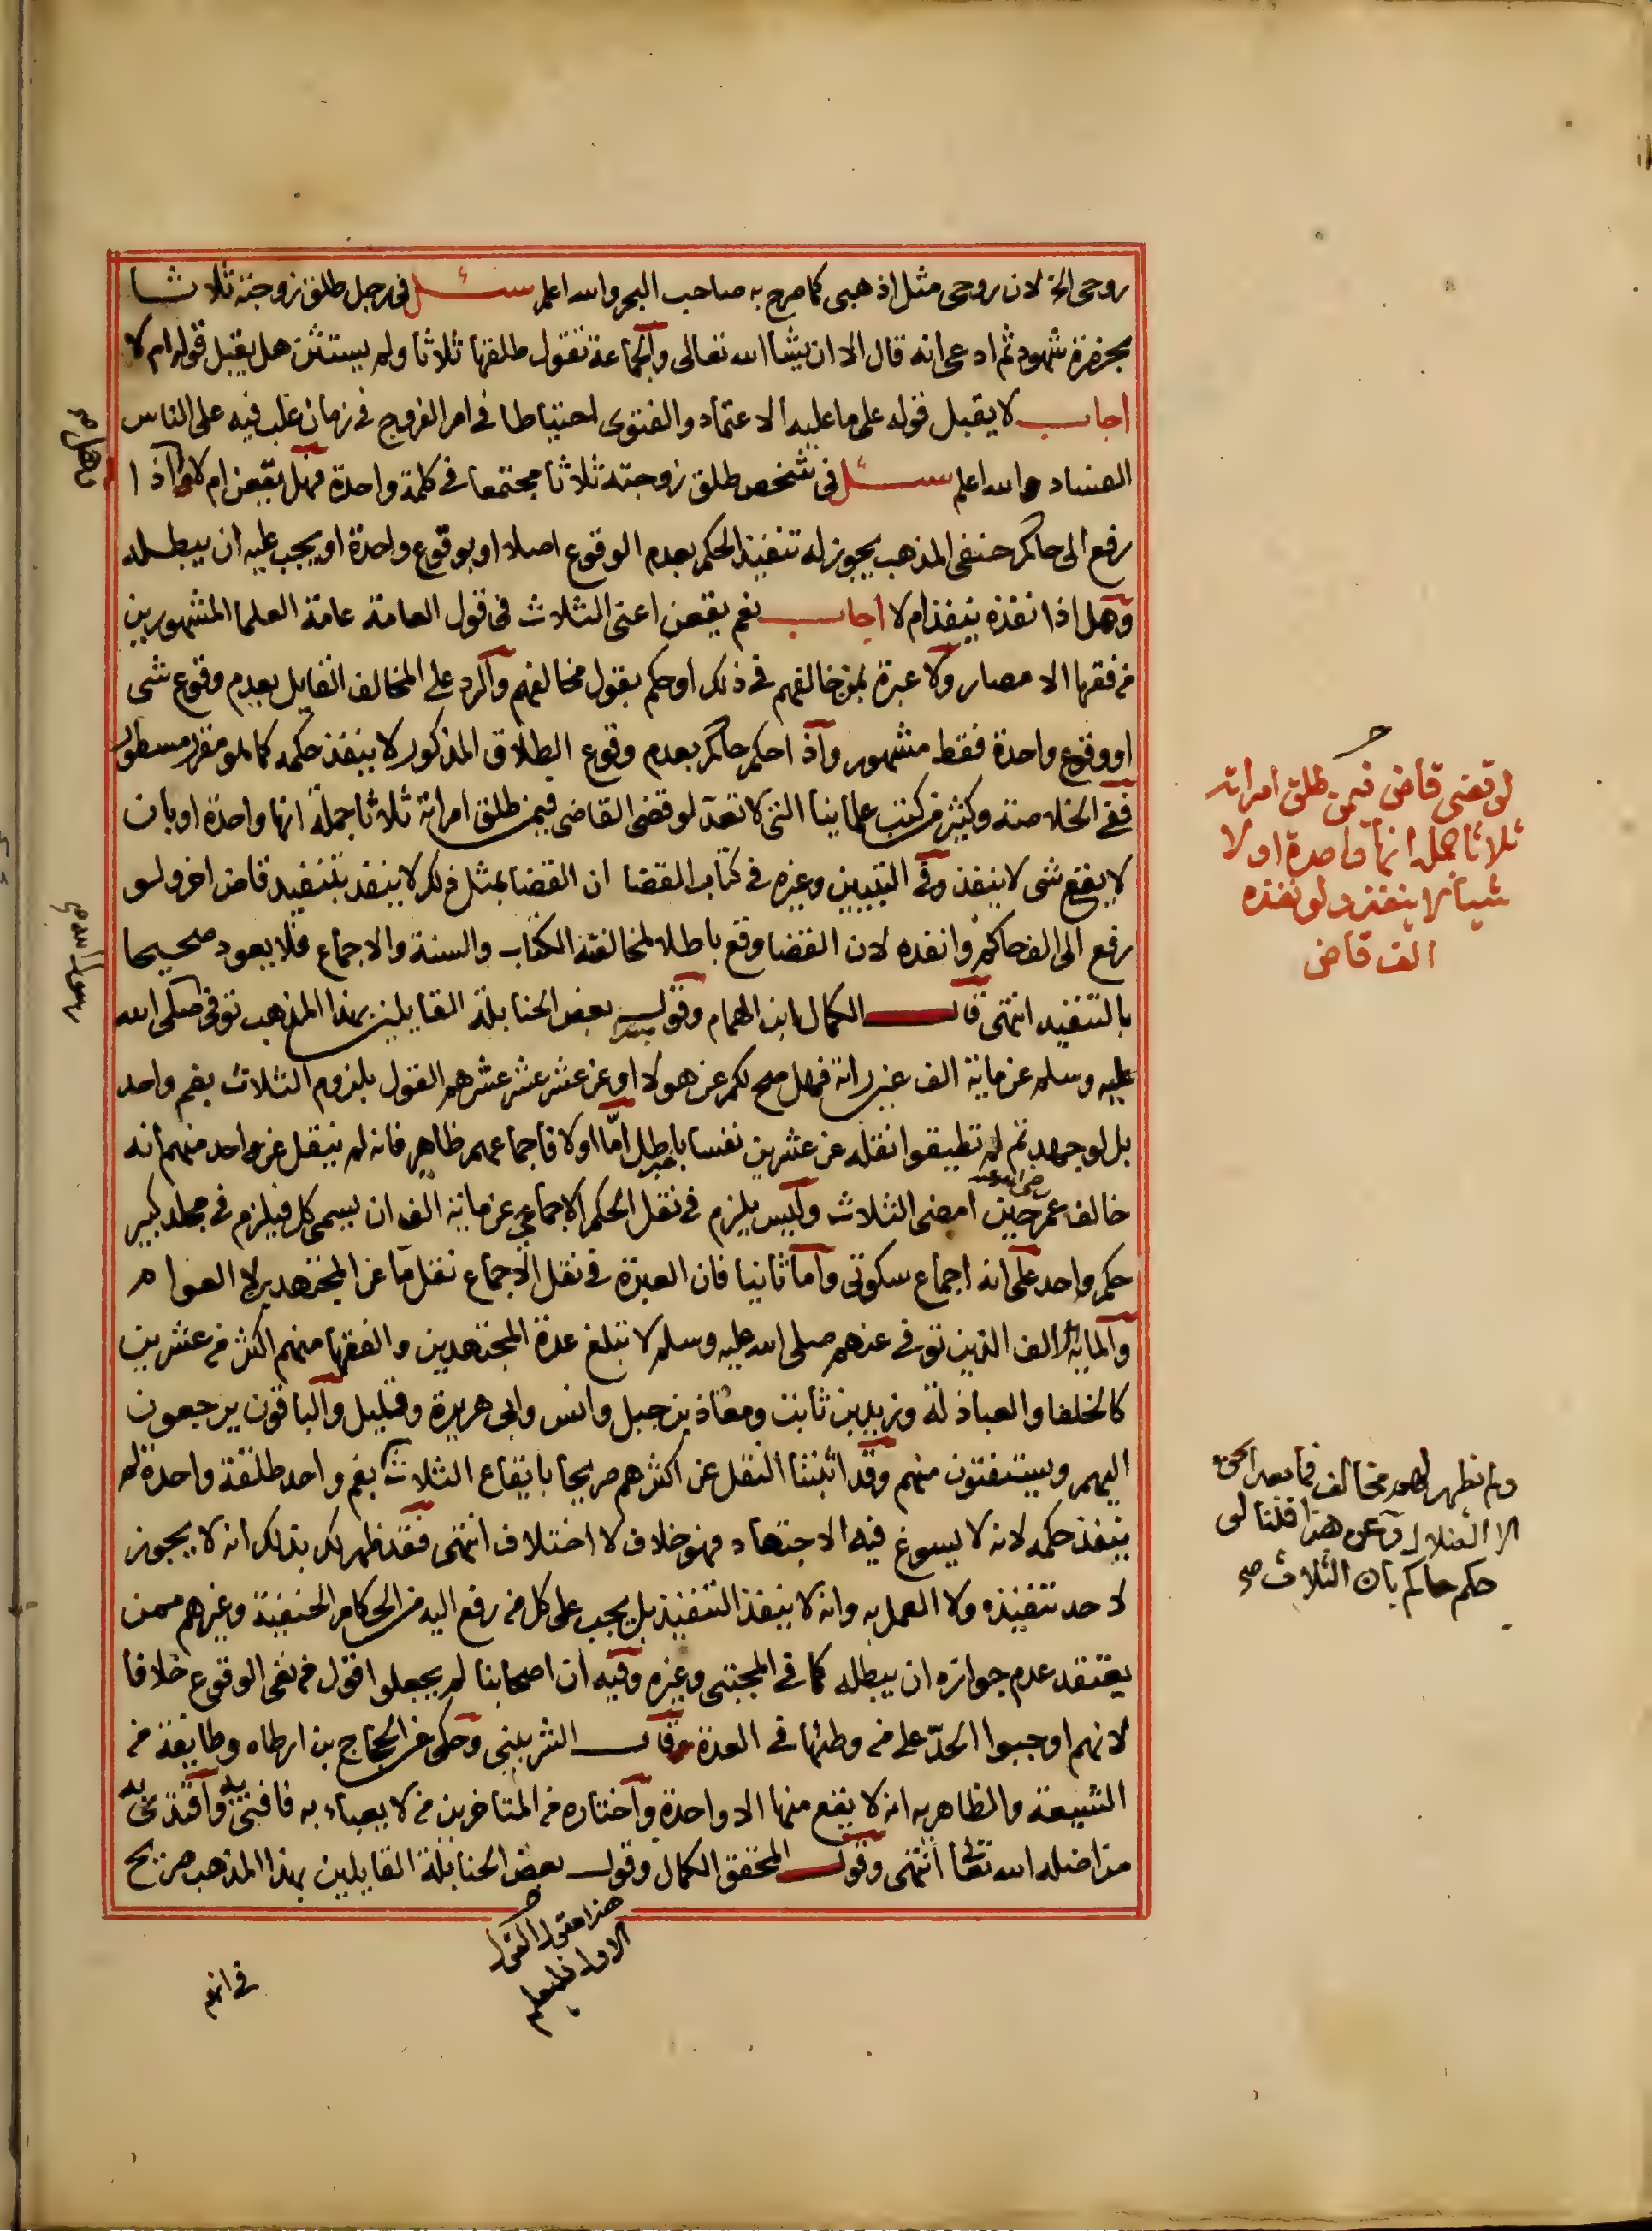 روحى الخ لان روحى مثل اذهبى كما صرح به صاحب البحر والله اعلم سئل فى رجل طلق زوجته ثلاثا
بحضرة شهود ثم ادعى انه قال الا ان يشاالله تعالى والجماعة تقول طلقها ثلاثا ولم يستثن هل يقبل قوله ام لا
اجاب لا يقبل قوله على ما عليه الاعتماد والفتوى احتياطا فى امر الفروج فى زمان غلب فيه على الناس
الفساد والله اعلم سئل فى شخص طلق زوجته ثلاثا مجتمعا فى كلمة واحدة فهل يقعن ام لا واذا
رفع الى حاكم حنفى المذهب يجوز له تنفيذ الحكم بعدم الوقوع اصلا او بوقوع واحدة او يجب عليه ان يبطله
وهل اذا نفذه ينفذ ام لا اجاب نعم يقعن اعنى الثلاث فى قول العامة عامة العلما المشهورين
من فقها الامصار ولا عبرة بمن خالفهم فى ذلك او حكم بقول مخالفهم والرد على المخالف القايل بعدم وقوع شى
او وقوع واحدة فقط مشهور واذا حكم حاكم بعدم وقوع الطلاق المذكور لا ينفذ حكمه كما هو مقرر مسطور
ففى الخلاصة وكثير من كتب علماينا التى لا تعد لو قضى القاضى فيمن طلق امراته ثلاثا جملة انها واحدة او بان
لا يقع شى لا ينفذ وفى التبيين وغيره فى كتاب القضا ان القضا بمثل ذلك لا ينفذ بتنفيذ قاض اخر ولو
رفع الى الف حاكم وانفذه لان القضا وقع باطلا لمخالفته الكتاب والسنة والاجماع فلا يعود صحيحا
بالتنفيذ انتهى قال الكمال ابن الهمام وقول بعض الحنابلة القايلين بهذا المذهب توفى صلى الله
عليه وسلم عن ماية الف عين راته فهل صح لكم عن هولا او عن عشر عشر عشرهم القول بلزوم الثلاث بفم واحد
بل لو جهدتم لم تطيقوا نقله عن عشرين نفسا باطل اما اولا فاجماعهم ظاهر فانه لم ينقل عن واحد منهم انه
خالف عمر رضى الله عنه حين امضى الثلاث وليس يلزم فى نقل الحكم الاجماعى عن ماية الف ان يسمى كل فيلزم فى مجلد كبير
حكم واحد على انه اجماع سكوتى واما ثانيا فان العبرة فى نقل الاجماع نقل ما عن المجتهدين لا العوام
والماية الف الذين توفى عنهم صلى الله عليه وسلم لا تبلغ عدة المجتهدين والفقها منهم اكثر من عشرين
كالخلفا والعبادلة وزيد بن ثابت ومعاذ بن جبل وانس وابى هريرة وقليل والباقون يرجعون
اليهم ويستفتون منهم وقد اثبتنا النقل عن اكثرهم صريحا بايقاع الثلاث بفم واحد طلقة واحدة لم
ينفذ حكمه لانه لا يسوغ فيه الاجتهاد فهو خلاف لا اختلاف انتهى فقد ظهر لك بذلك انه لا يجوز
لاحد تنفيذه ولا العمل به وانه لا ينفذ التنفيذ بل يجب على كل من رفع اليه من الحكام الحنفية وغيرهم ممن
يعتقد عدم جوازه ان يبطله كما فى المجتبى وغيره وفيه ان اصحابنا لم يجعلوا قول من نفى الوقوع خلافا
لانهم اوجبوا الحد على من وطئها فى العدة وقال الشربينى وحكى عن الحجاج بن ارطاه وطايفة من
الشيعة والظاهريه انه لا يقع منها الا واحدة واختاره من المتاخرين من لا يعباء به فافتى به واقتدى به
من اضله الله تعالى انتهى وقول المحقق الكمال وقول بعض الحنابلة القايلين بهذا المذهب صريح
لو قضى قاض فيمن طلق امراته
ثلاثا جملة انها واحدة او لا
شيأ لا ينفذ ولو نفذه
الف قاض
ولم يظهر لهم مخالف فماذا بعد الحق
الا الضلال وعن هذا قلنا لو
حكم حاكم بان الثلاث صح
هذا مقول القول
الاول فليعلم
فى انهم